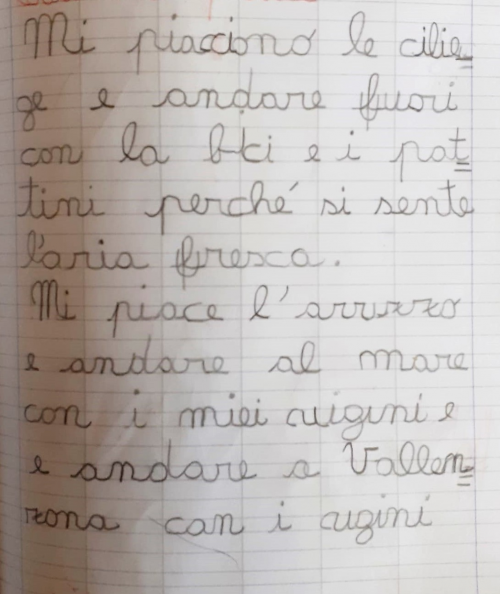 Mi piacciono le cilie=
ge e andare fuori
con la btci e i pat=
tini perché si sente
l'aria fresca.
Mi piace l'azzurro
e andare al mare
con i miei cuigini e
e andare a Vallen=
zona con i cugini